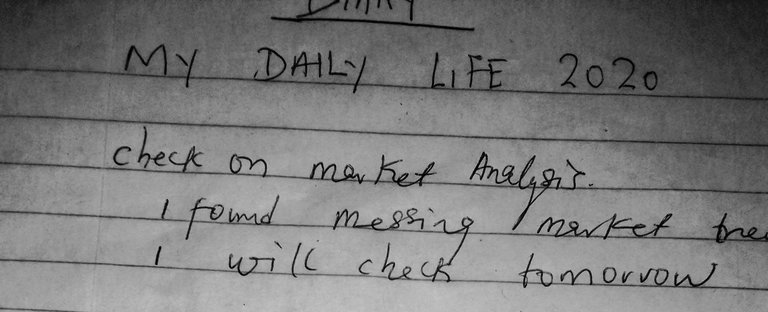 DIARY
MY DAILY LIFE 2020
check on market Analysis.
I found messing market
I will check tomorrow